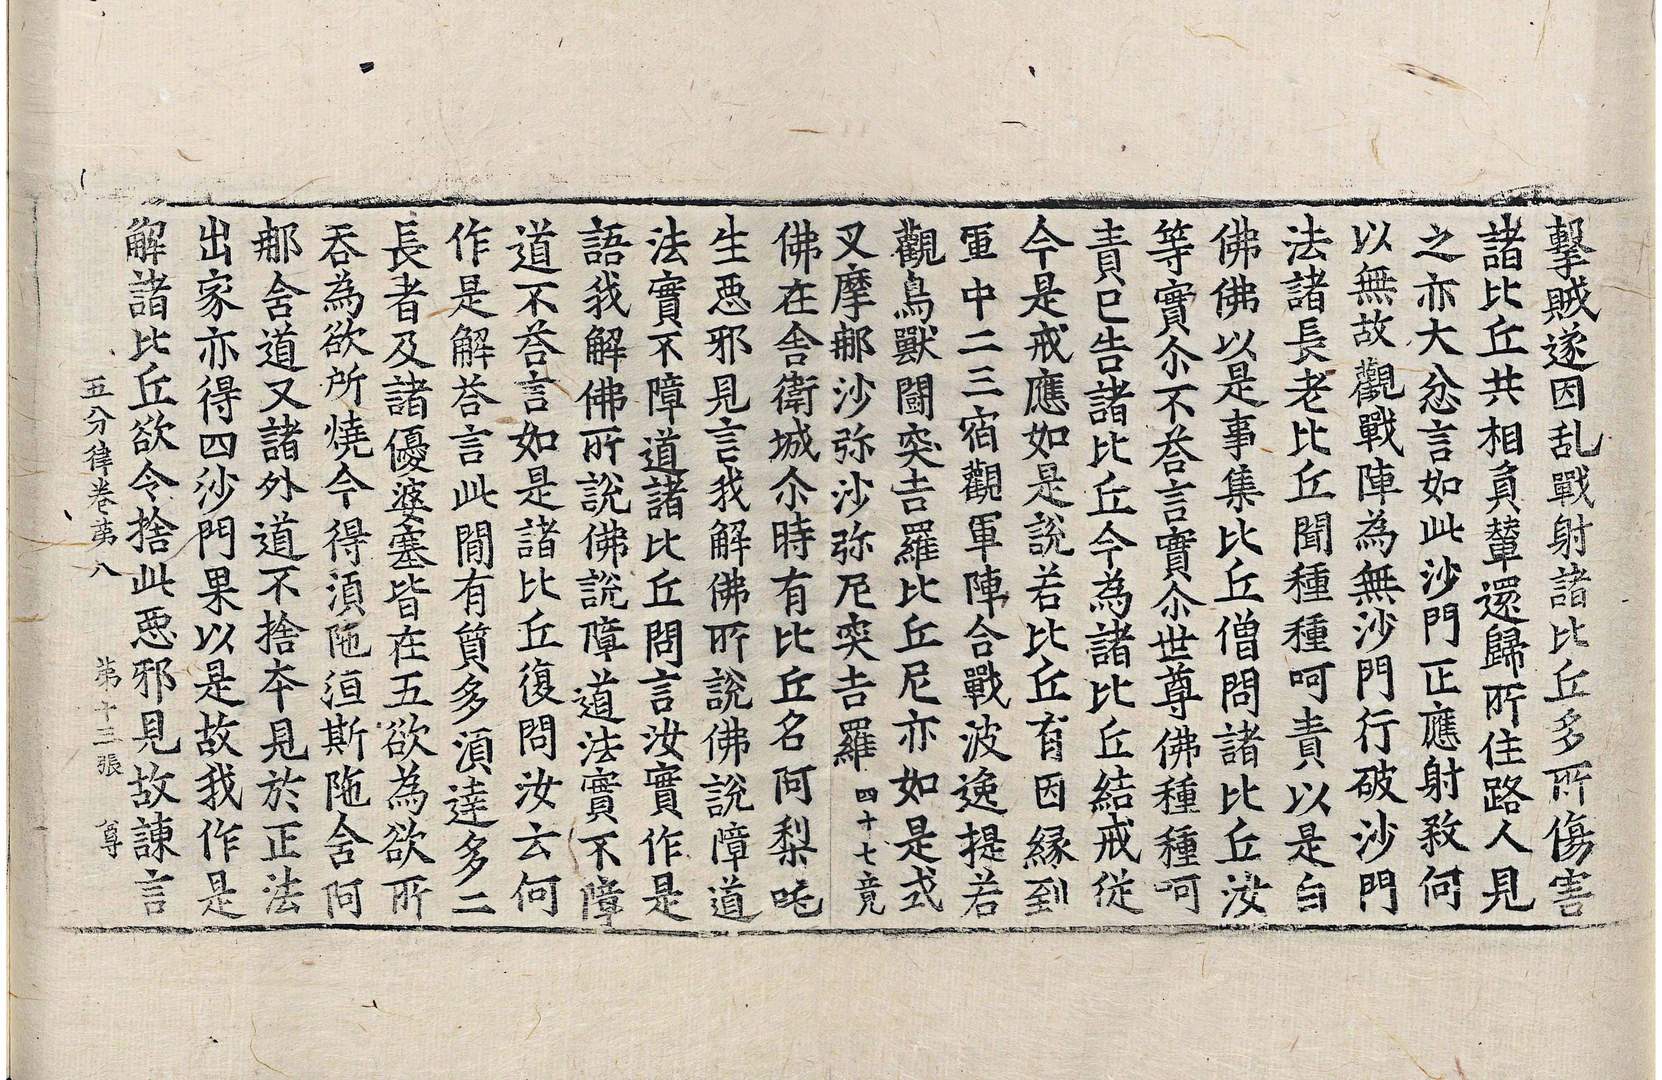 擊賊遂因乱戰射諸比丘多所傷害
諸比丘共相負輦還歸所住路人見
之亦大忿言如此沙門正應射敎何
以無故觀戰陣為無沙門行破沙門
法諸長老比丘聞種種呵責以是白
佛佛以是事集比丘僧問諸比丘汝
等實尒不荅言實尒世尊佛種種呵
責已告諸比丘今為諸比丘結戒從
今是戒應如是說若比丘有因緣到
軍中二三宿觀軍陣合戰波逸提若
觀鳥獸鬪突吉羅比丘尼亦如是式
叉摩郍沙弥沙弥尼突吉羅 四十七竟
佛在舍衛城尒時有比丘名阿梨咤
生惡邪見言我解佛所說佛說障道
法實不障道諸比丘問言汝實作是
語我解佛所說佛說障道法實不障
道不荅言如是諸比丘復問汝云何
作是解荅言此間有質多湏達多二
長者及諸優婆塞皆在五欲為欲所
吞為欲所燒今得湏陁洹斯陁舍阿
郍含道又諸外道不捨本見於正法
出家亦得四沙門果以是故我作是
解諸比丘欲令捨此惡邪見故諫言
五分律卷苐八 苐十三張 尊